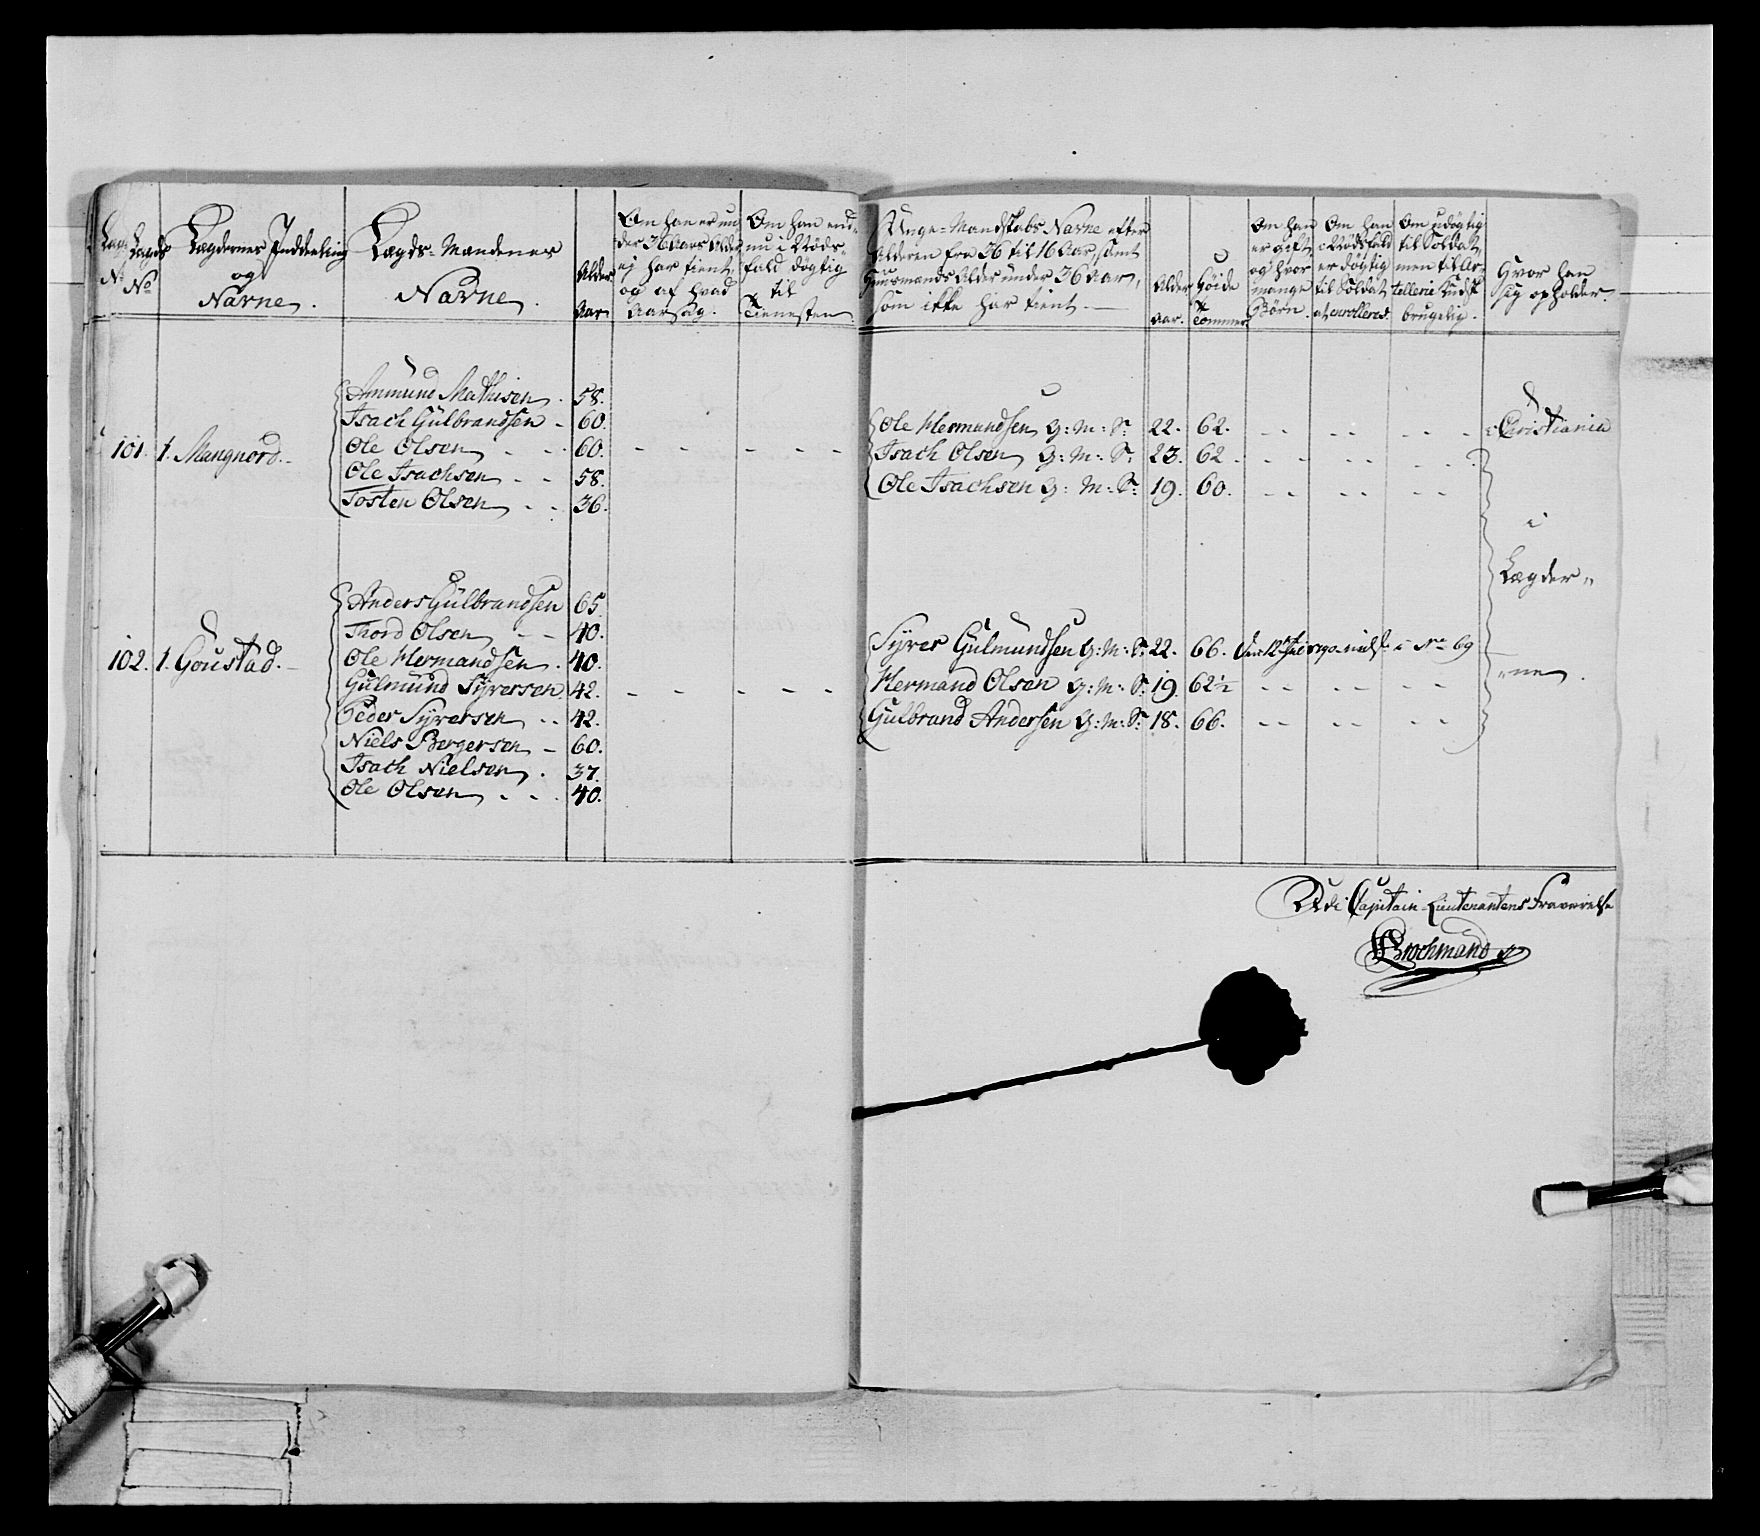 Lægds No
Lægdernes Inddeeling
og
Navne.
Lægds-Mandenes
Navne.
Alder
Aar
Om han er un-
der 36 Aars Alder
ej har tient,
og af hvad
Aarsag.
Om han end-
nu i Nøds-
fald døgtig
til
Tienesten.
Unge-Mandskabs Navne efter
Alderen fra 36 til 16 Aar, samt
Huusmænds Alder under 36 Aar,
som ikke har tient.
Alder
Aar.
Høide
Tommer.
Om han
er gift,
og hvor
mange
Børn.
Om han
i Nødsfald
er døgtig
til Soldat
at enrolleres.
Om udøgtig
til Soldat,
men til Ar-
tellerie Kudsk
brugelig.
Hvor han
sig opholder.
Ammund Mathisen. 58.
Isach Gülbrandsen - 60.
101. 1. Mangnord.
Ole Olsen - - 60. - - - - - -
Ole Isachsen - - 58.
Tosten Olsen - - 36.
Ole Hermandsen G: M: S: 22. 62. - - - - - i Christiania
Isach Olsen G: M: S: 23. 62 - - - - - - -
Ole Isachsen G: M: S: 19. 60. - - - - - -
i
Lægder„
„ne.
Anders Gülbrandsen 65.
Thord Olsen - - 40.
102. 1. Goustad.
Ole Hermandsen. 40.
Gülmünd Syversen 42. - - - - - -
Peder Syversen - - 42.
Niels Bergersen - 60.
Isach Nielsen. 37.
Ole Olsen - - - 40.
Syver Gülmündsen G: M: S: 22. 66. i No 69
Hermand Olsen G: M: S: 19. 62½ - - - - - -
Gülbrand Andersen G: M: S: 18. 66. - - - - - -
Udi Capitain-Lieutenantens Fraværelse
Brochmand